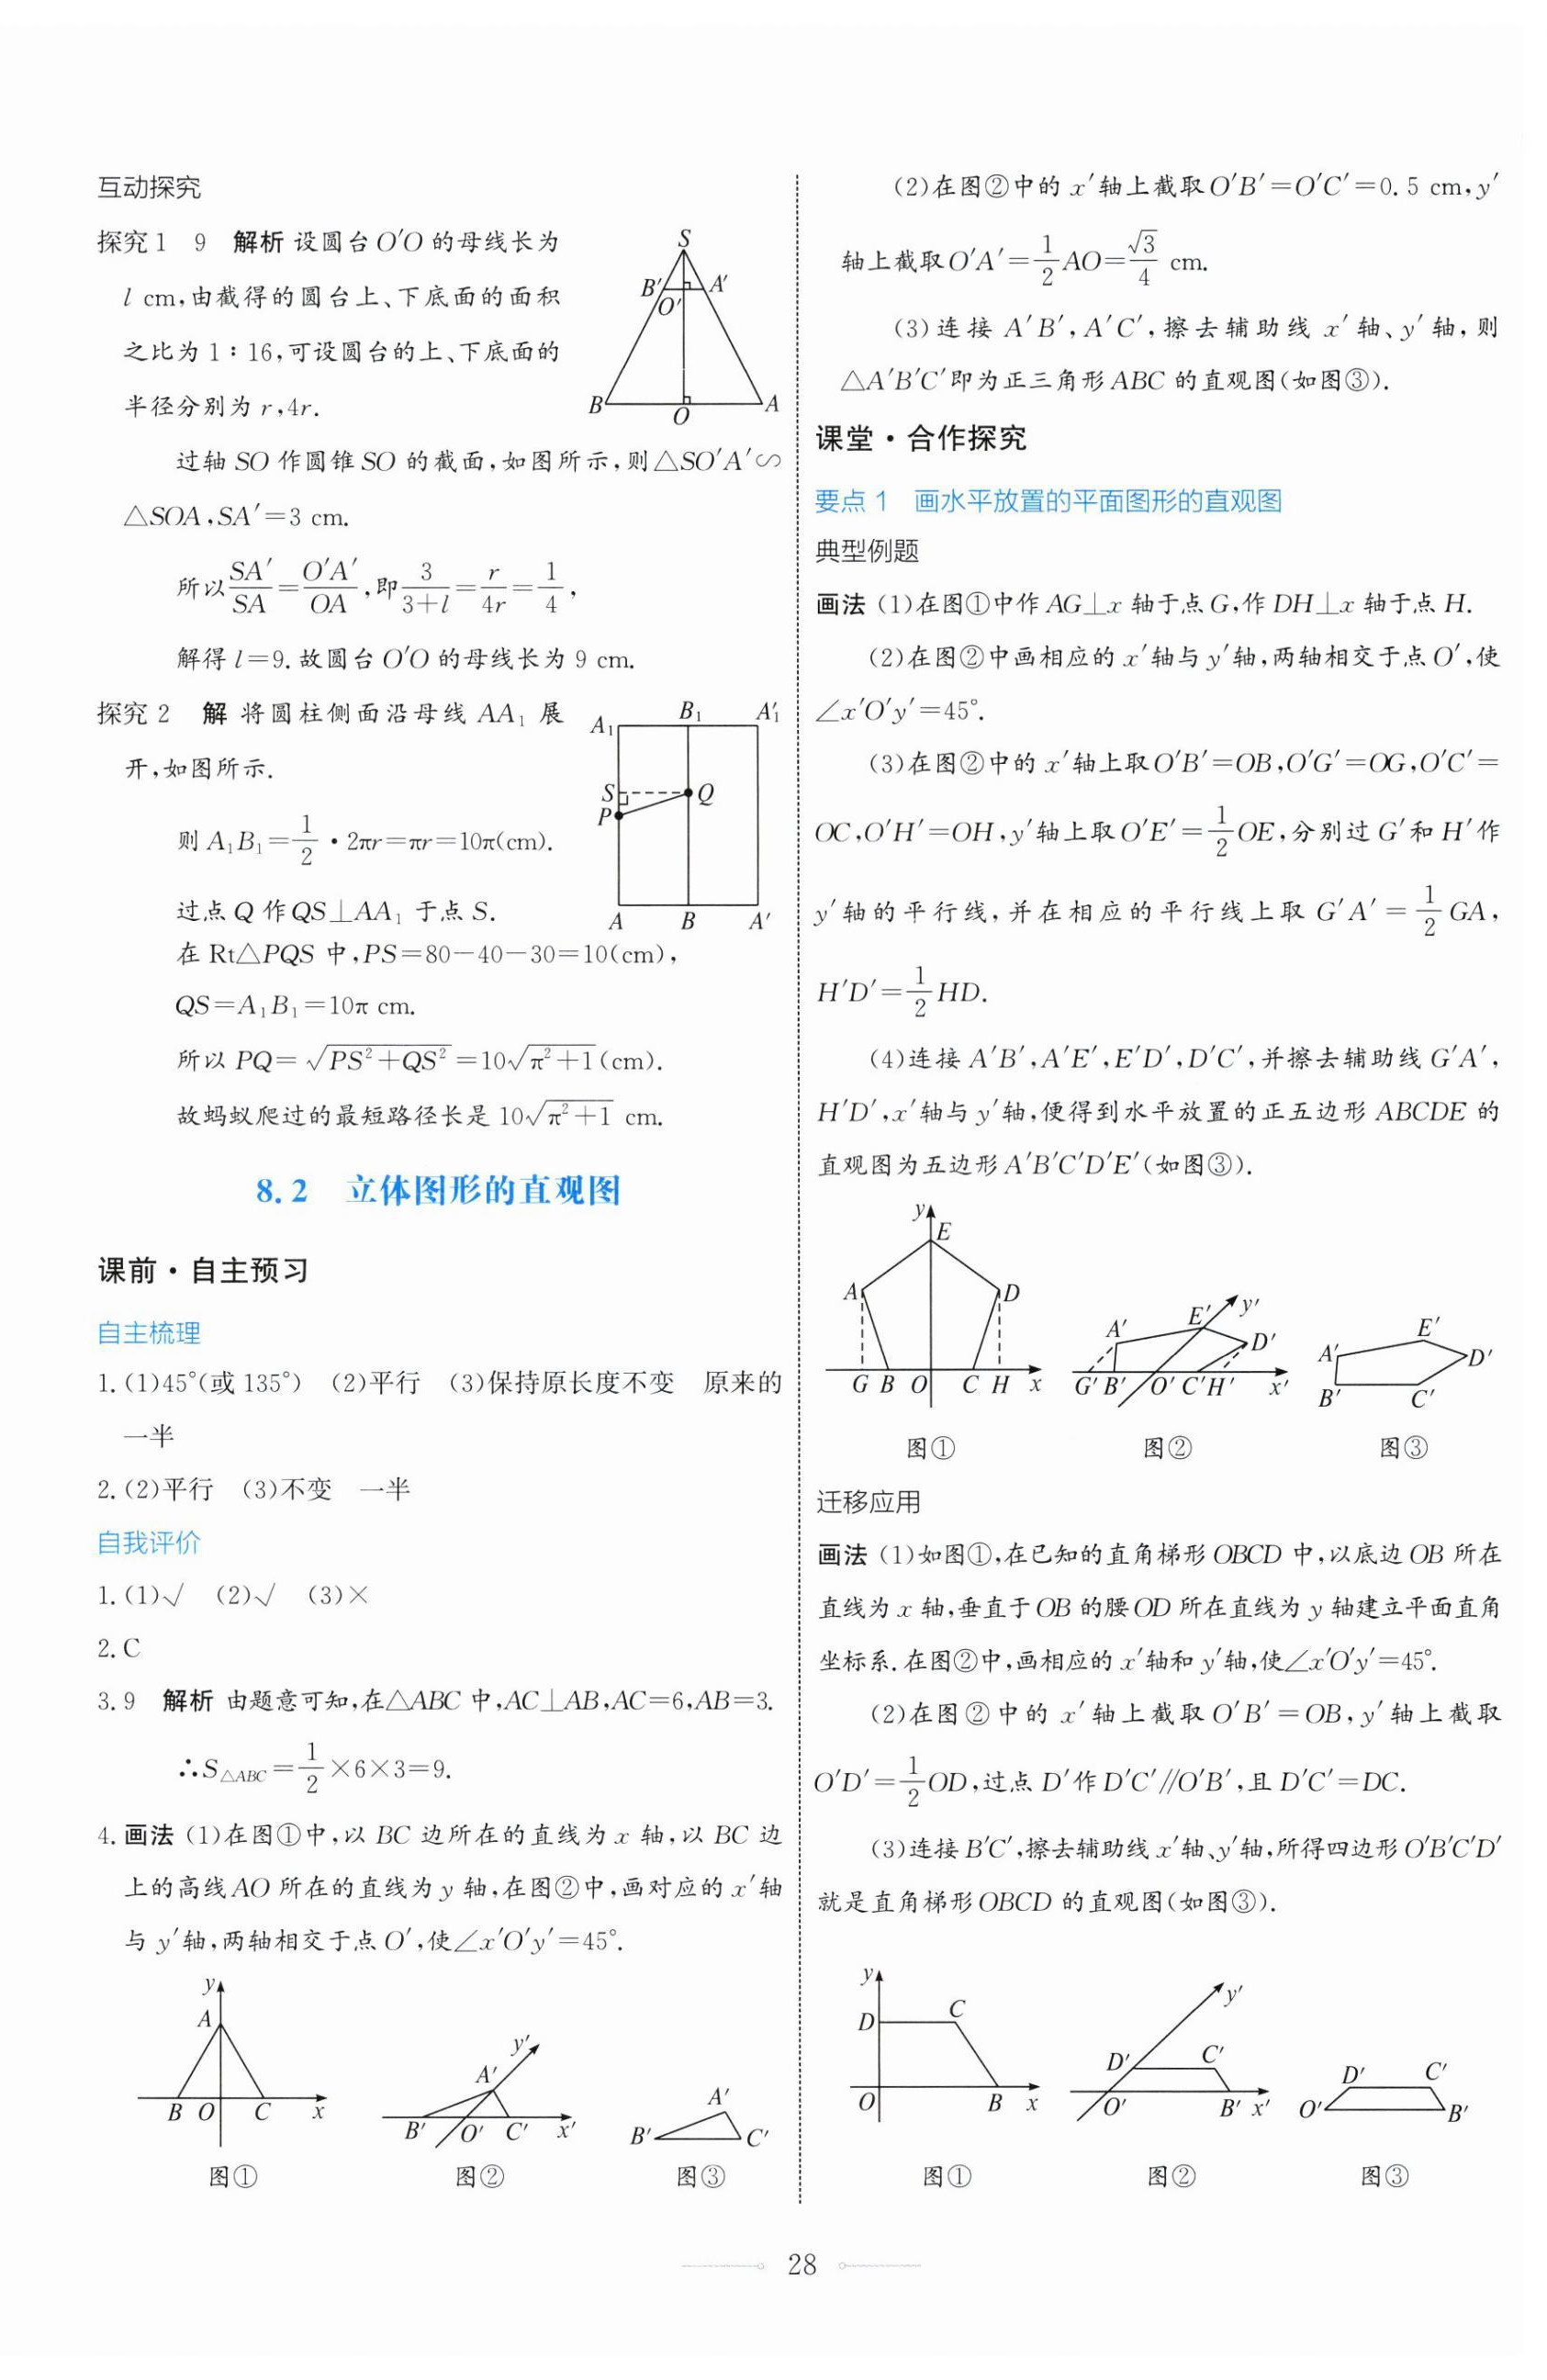 互动探究
探究1 9 解析 设圆台O′O的母线长为
l cm,由截得的圆台上、下底面的面积
之比为1∶16,可设圆台的上、下底面的
半径分别为r,4r.
S
B′ A′
O′
B O A
过轴SO作圆锥SO的截面,如图所示,则△SO′A′∽
△SOA,SA′=3 cm.
所以SA′/SA=O′A′/OA,即3/(3+l)=r/4r=1/4,
解得l=9.故圆台O′O的母线长为9 cm.
探究2 解 将圆柱侧面沿母线AA₁展
开,如图所示.
则A₁B₁=1/2·2πr=πr=10π(cm).
过点Q作QS⊥AA₁于点S.
A₁ B₁ A′₁
S Q
P
A B A′
在Rt△PQS中,PS=80-40-30=10(cm),
QS=A₁B₁=10π cm.
所以PQ=√(PS²+QS²)=10√(π²+1)(cm).
故蚂蚁爬过的最短路径长是10√(π²+1) cm.
8.2 立体图形的直观图
课前·自主预习
自主梳理
1.(1)45°(或135°) (2)平行 (3)保持原长度不变 原来的
一半
2.(2)平行 (3)不变 一半
自我评价
1.(1)√ (2)√ (3)×
2.C
3.9 解析 由题意可知,在△ABC中,AC⊥AB,AC=6,AB=3.
∴S△ABC=1/2×6×3=9.
4.画法 (1)在图①中,以BC边所在的直线为x轴,以BC边
上的高线AO所在的直线为y轴,在图②中,画对应的x′轴
与y′轴,两轴相交于点O′,使∠x′O′y′=45°.
y
A
B O C x
y′
A′
B′ O′ C′ x′
A′
B′ C′
图① 图② 图③
(2)在图②中的x′轴上截取O′B′=O′C′=0.5 cm,y′
轴上截取O′A′=1/2AO=√3/4 cm.
(3)连接A′B′,A′C′,擦去辅助线x′轴、y′轴,则
△A′B′C′即为正三角形ABC的直观图(如图③).
课堂·合作探究
要点1 画水平放置的平面图形的直观图
典型例题
画法 (1)在图①中作AG⊥x轴于点G,作DH⊥x轴于点H.
(2)在图②中画相应的x′轴与y′轴,两轴相交于点O′,使
∠x′O′y′=45°.
(3)在图②中的x′轴上取O′B′=OB,O′G′=OG,O′C′=
OC,O′H′=OH,y′轴上取O′E′=1/2OE,分别过G′和H′作
y′轴的平行线,并在相应的平行线上取G′A′=1/2GA,
H′D′=1/2HD.
(4)连接A′B′,A′E′,E′D′,D′C′,并擦去辅助线G′A′,
H′D′,x′轴与y′轴,便得到水平放置的正五边形ABCDE的
直观图为五边形A′B′C′D′E′(如图③).
y
E
A D
G B O C H x
A′ E′ y′
D′
G′ B′ O′ C′ H′ x′
E′
A′ D′
B′ C′
图① 图② 图③
迁移应用
画法 (1)如图①,在已知的直角梯形OBCD中,以底边OB所在
直线为x轴,垂直于OB的腰OD所在直线为y轴建立平面直角
坐标系.在图②中,画相应的x′轴和y′轴,使∠x′O′y′=45°.
(2)在图②中的x′轴上截取O′B′=OB,y′轴上截取
O′D′=1/2OD,过点D′作D′C′∥O′B′,且D′C′=DC.
(3)连接B′C′,擦去辅助线x′轴、y′轴,所得四边形O′B′C′D′
就是直角梯形OBCD的直观图(如图③).
y
D C
O B x
y′
D′ C′
O′ B′ x′
D′ C′
O′ B′
图① 图② 图③
28